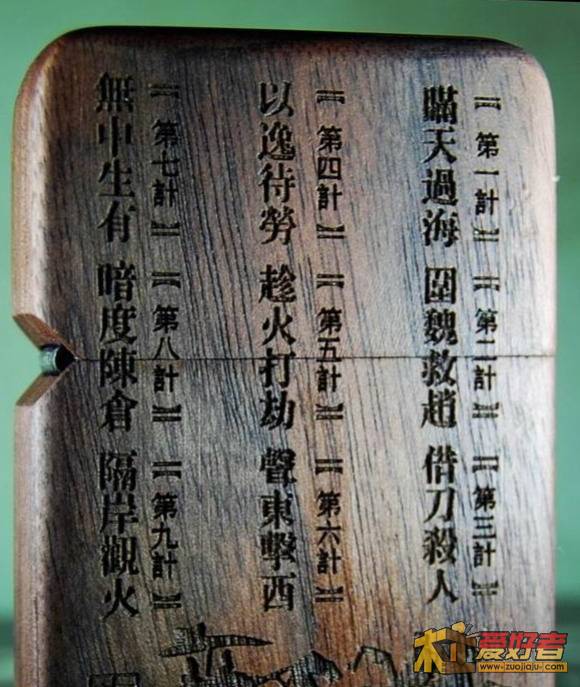 【第一計】 【第二計】 【第三計】
瞞天過海 圍魏救趙 借刀殺人
【第四計】 【第五計】 【第六計】
以逸待勞 趁火打劫 聲東擊西
【第七計】 【第八計】 【第九計】
無中生有 暗度陳倉 隔岸觀火
木工爱好者
www.zuojiaju.com